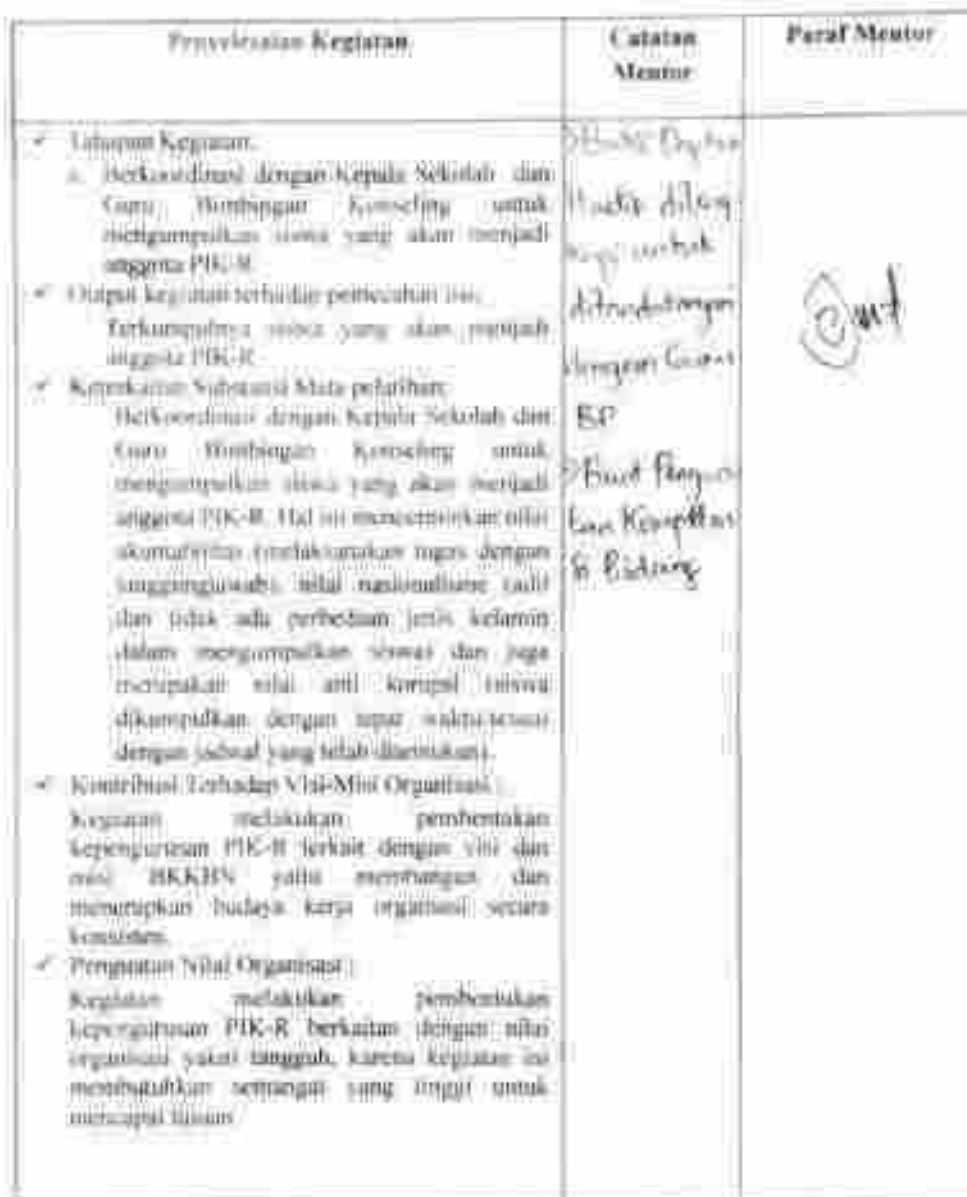 Penyelesaian Kegiatan
Catatan
Mentor
Paraf Mentor
✓ Tahapan Kegiatan:
a. Berkoordinasi dengan Kepala Sekolah dan
Guru Bimbingan Konseling untuk
mengumpulkan siswa yang akan menjadi
anggota PIK-R
✓ Output kegiatan terhadap pemecahan isu:
Terkumpulnya siswa yang akan menjadi
anggota PIK-R
✓ Keterkaitan Substansi Mata pelatihan:
Berkoordinasi dengan Kepala Sekolah dan
Guru Bimbingan Konseling untuk
mengumpulkan siswa yang akan menjadi
anggota PIK-R. Hal ini mencerminkan nilai
akuntabilitas (melaksanakan tugas dengan
tanggungjawab), nilai nasionalisme (adil
dan tidak ada perbedaan jenis kelamin
dalam mengumpulkan siswa) dan juga
merupakan nilai anti korupsi (siswa
dikumpulkan dengan tepat waktu sesuai
dengan jadwal yang telah ditentukan).
✓ Kontribusi Terhadap Visi-Misi Organisasi :
Kegiatan melakukan pembentukan
kepengurusan PIK-R terkait dengan visi dan
misi BKKBN yaitu membangun dan
menerapkan budaya kerja organisasi secara
konsisten.
✓ Penguatan Nilai Organisasi :
Kegiatan melakukan pembentukan
kepengurusan PIK-R berkaitan dengan nilai
organisasi yakni tangguh, karena kegiatan ini
membutuhkan semangat yang tinggi untuk
mencapai tujuan
untuk
ditandatangani
dengan Guru
BP